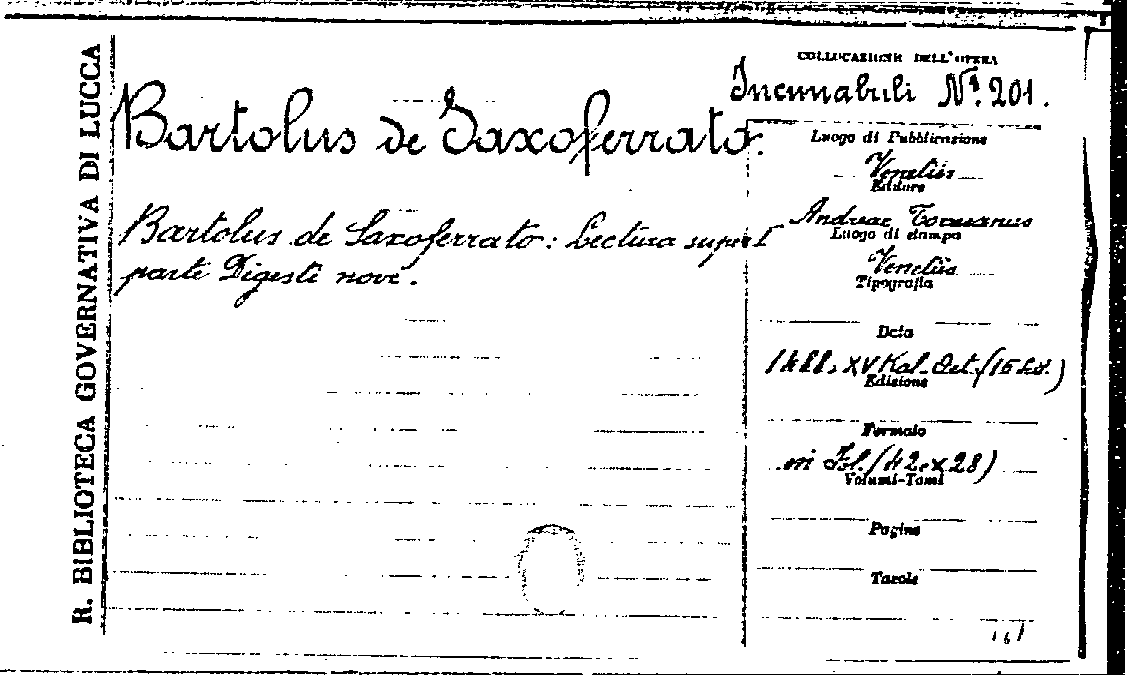 R. BIBLIOTECA GOVERNATIVA DI LUCCA
Bartolus de Saxoferrato.
Bartolus de Saxoferrato: Lectura super I
parte Digesti novi.
COLLOCAZIONE DELL'OPERA
Incunabuli Nº. 201.
Luogo di Pubblicazione
Venetiis
Editore
Andreae Toresanus
Luogo di stampa
Venetiis
Tipografia
Data
XV Kal. Oct.
Edizione
Formato
in Fol. (42 x 28)
Volumi-Tomi
Pagine
Tavole